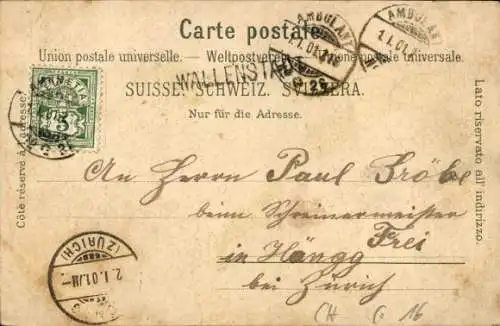 Carte postale.
Union postale universelle. — Weltpostverein. — Unione postale universale.
SUISSE. SCHWEIZ. SVIZZERA.
Nur für die Adresse.
Côté réservé à l'adresse.
Lato riservato all' indirizzo.
WALLENSTADT
AMBULANT
1.I.01
AMBULANT
1.I.01
HELVETIA
5
An Herrn Paul Gröbe
beim Schreinermeister
Frei
in Höngg
bei Zürich
(ZÜRICH)
2.I.01
CH
16